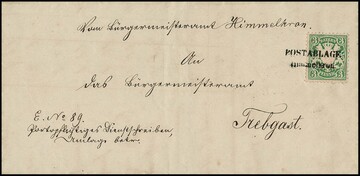 Vom Bürgermeisteramt Himmelkron.
An
das Bürgermeisteramt
Trebgast.
E. No 89.
Portopflichtiges Dienstschreiben,
Umlage betr.
POSTABLAGE
Himmelkron
3
3